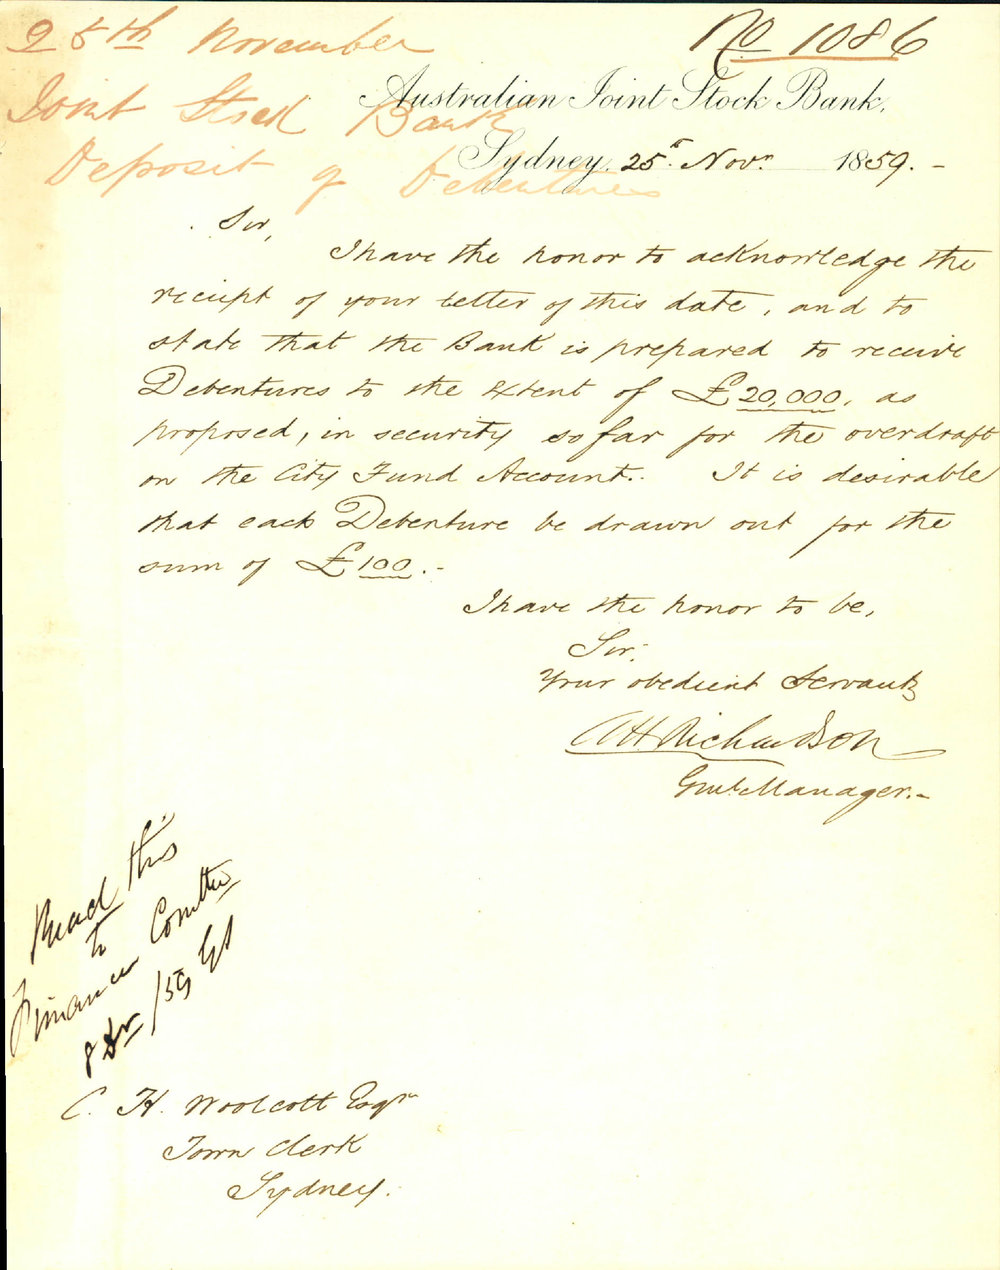 25th November
Joint Stock Bank
Deposit of Debentures
No 1086
Australian Joint Stock Bank,
Sydney, 25th Novr. 1859.-
Sir,
I have the honor to acknowledge the
receipt of your letter of this date, and to
state that the Bank is prepared to receive
Debentures to the extent of £20,000, as
proposed, in security so far for the overdraft
on the City Fund Account. It is desirable
that each Debenture be drawn out for the
sum of £100.-
I have the honor to be,
Sir,
Your obedient Servant
AH Richardson
Genl. Manager.-
Read this
to
Finance Comttee
8 Dr /59
C. H. Woolcott Esqr
Town Clerk
Sydney.